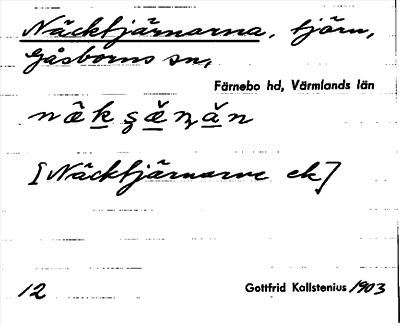 Näcktjärnarna, tjörn,
Gåsborns sn,
Färnebo hd, Värmlands län
[Näcktjärnarne ek]
12 Gottfrid Kallstenius 1903